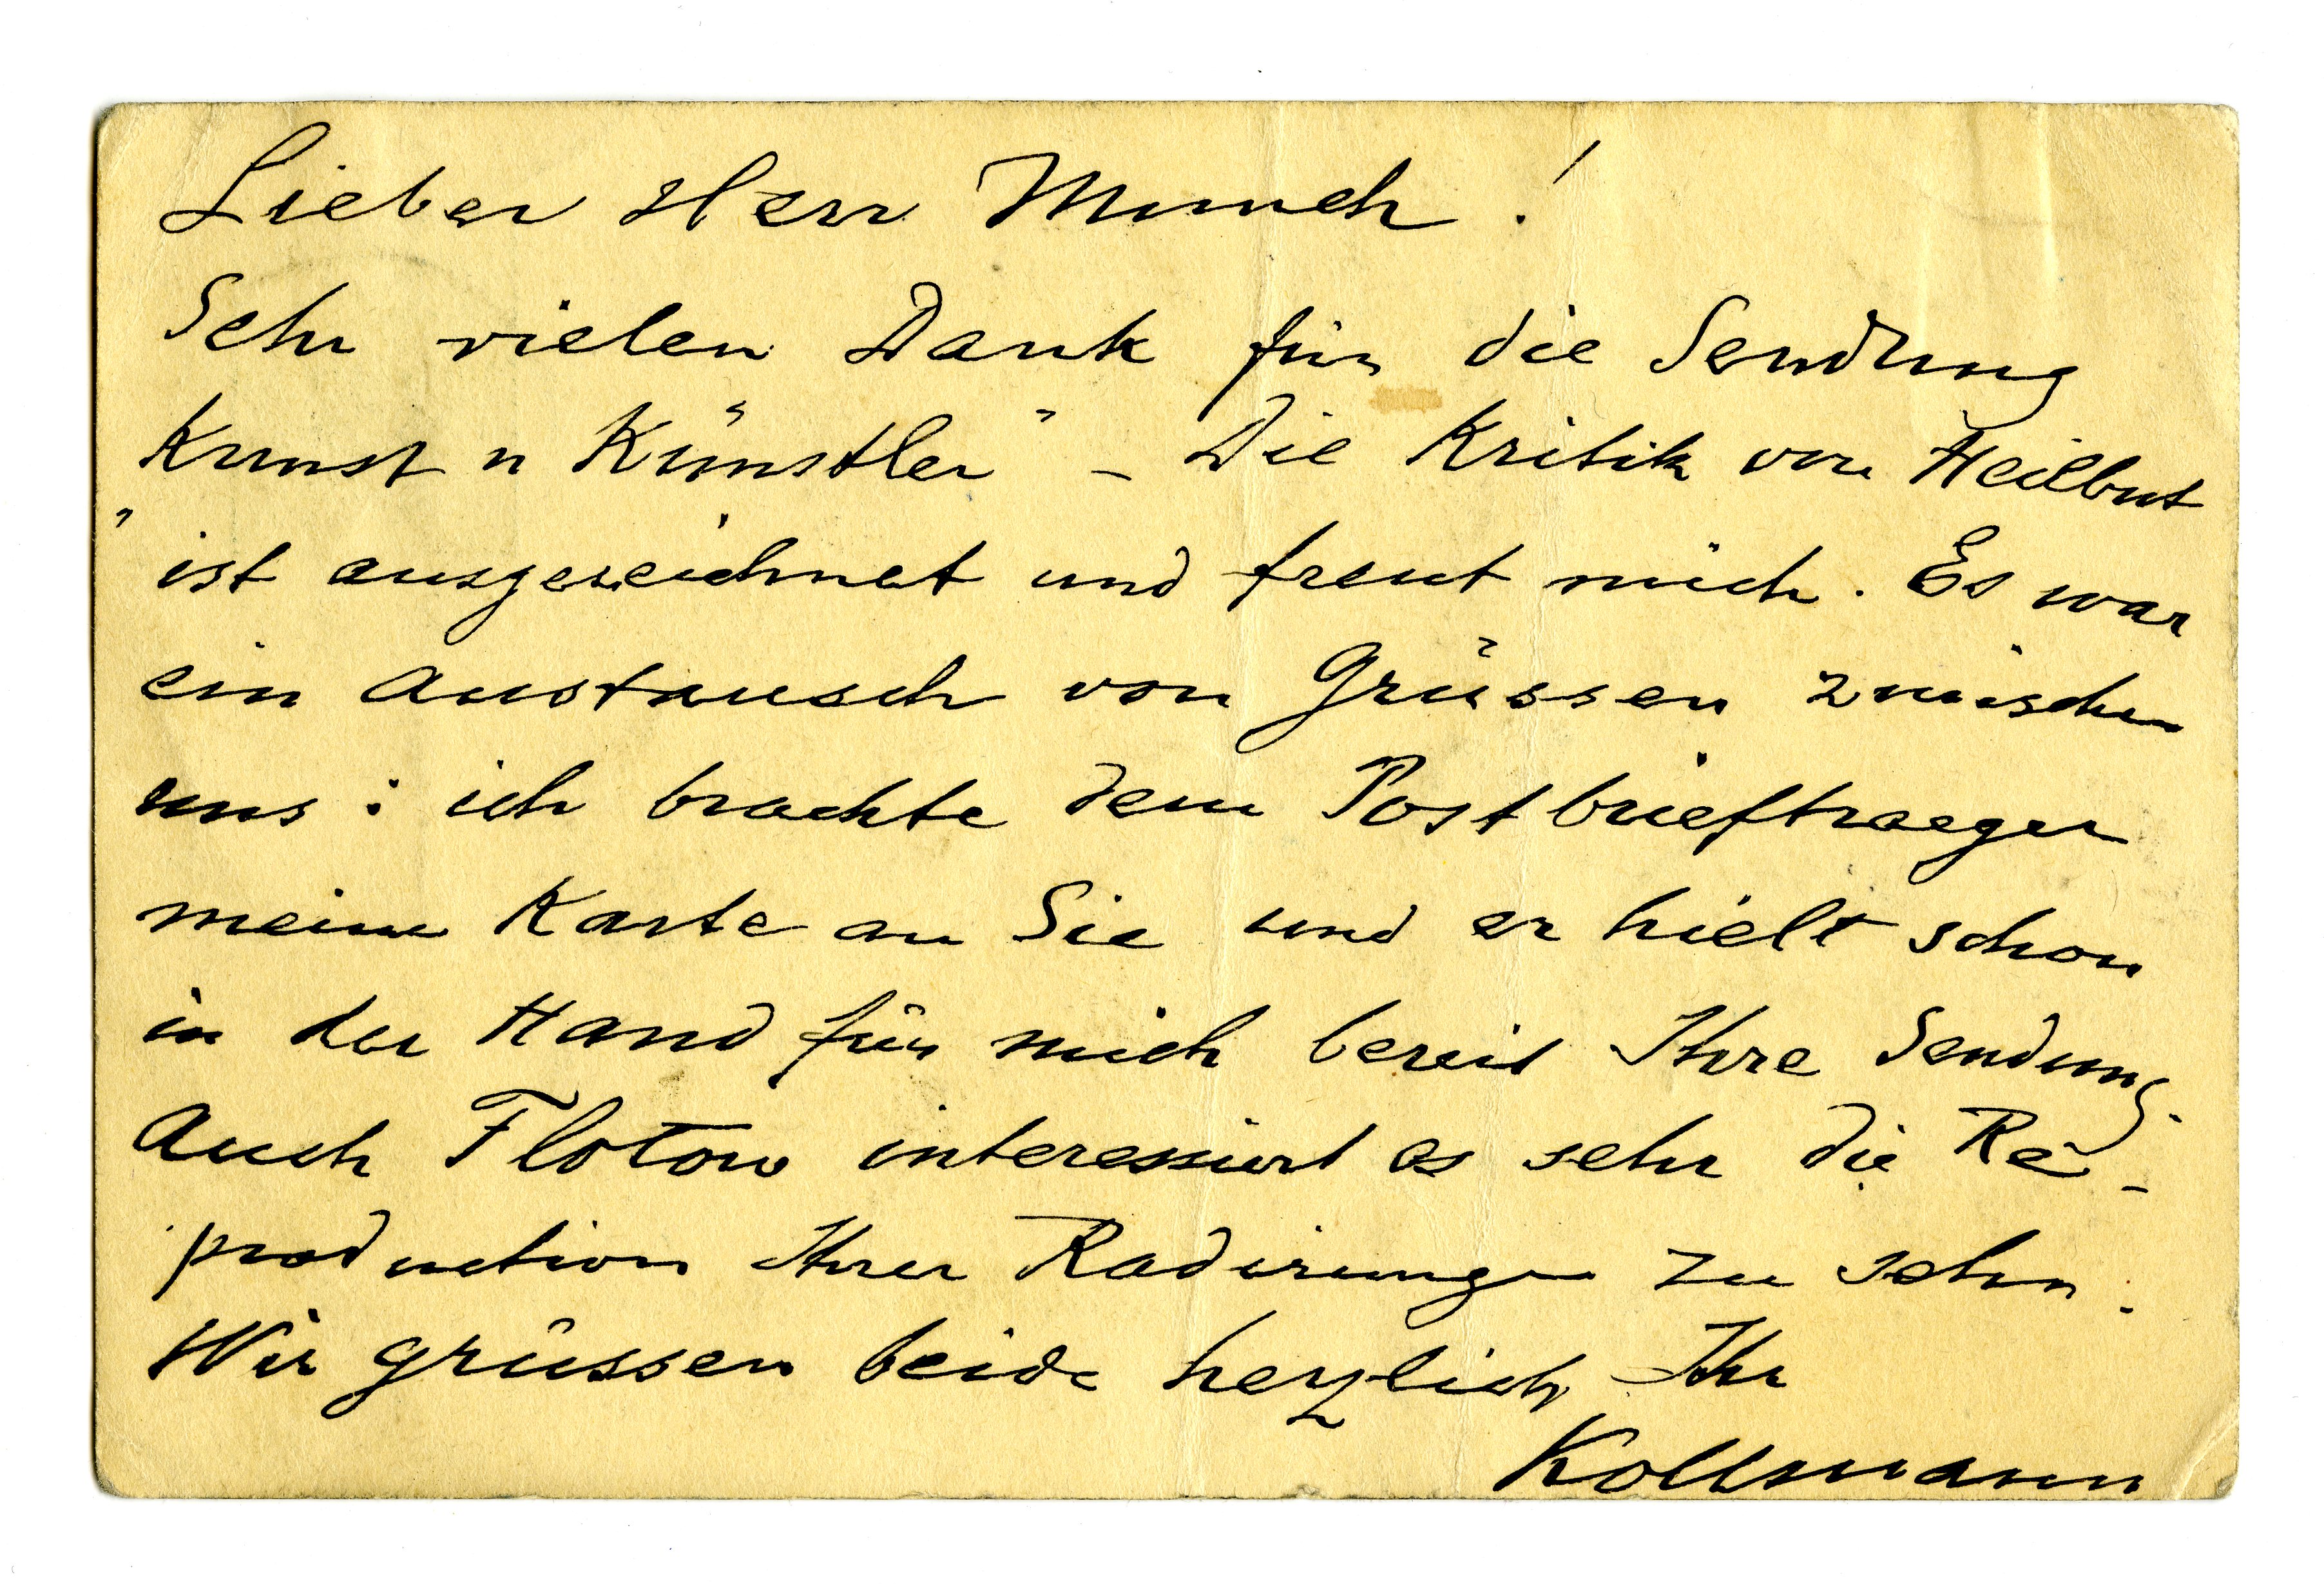 Lieber Herr Munch!
Sehr vielen Dank für die Sendung
„Kunst u Künstler“ – Die Kritik von Heilbut
ist ausgezeichnet und freut mich. Es war
ein Austausch von Grüssen zwischen
uns: ich brachte dem Postbrieftraeger
meine Karte an Sie und er hielt schon
in der Hand für mich bereit Ihre Sendung.
Auch Flotow interessiert es sehr die Re-
production Ihrer Radirungen zu sehn.
Wir grüssen beide herzlich Ihr
Kollmann